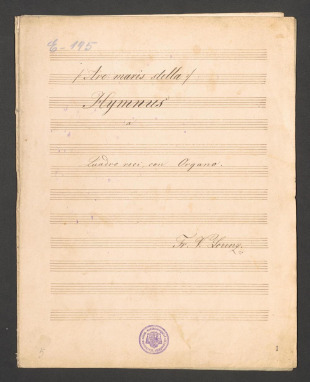 E-195
/ Ave maris stella /
Hymnus
a
Quadro voci, con Organo.
Fr. V.
1